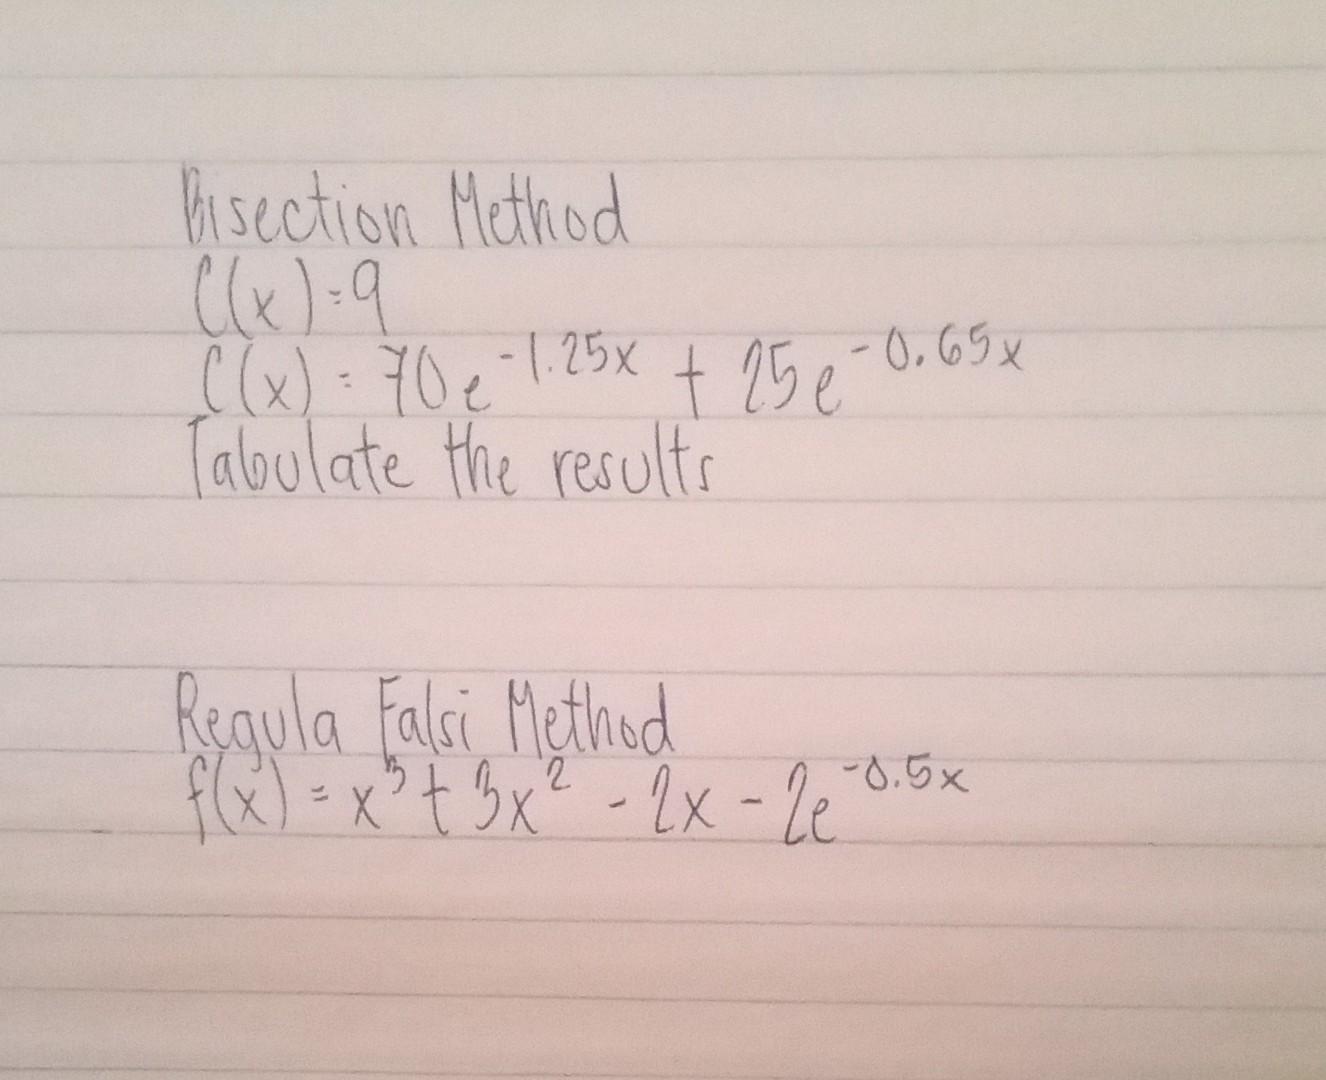 Bisection Method
C(x)=9
C(x) = 70e^-1.25x + 25e^-0.65x
Tabulate the results
Regula Falsi Method
f(x) = x^3 + 3x^2 - 2x - 2e^-0.5x